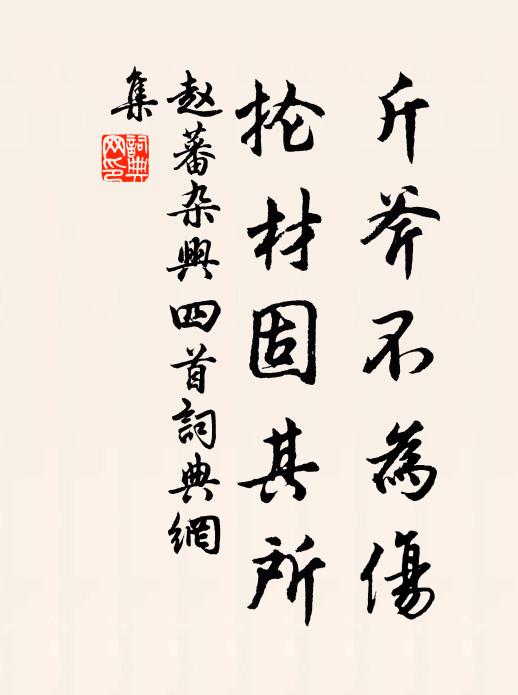 斤斧不為傷
抡材固其所
赵蕃杂興四首詞典網
集
詞典
网印